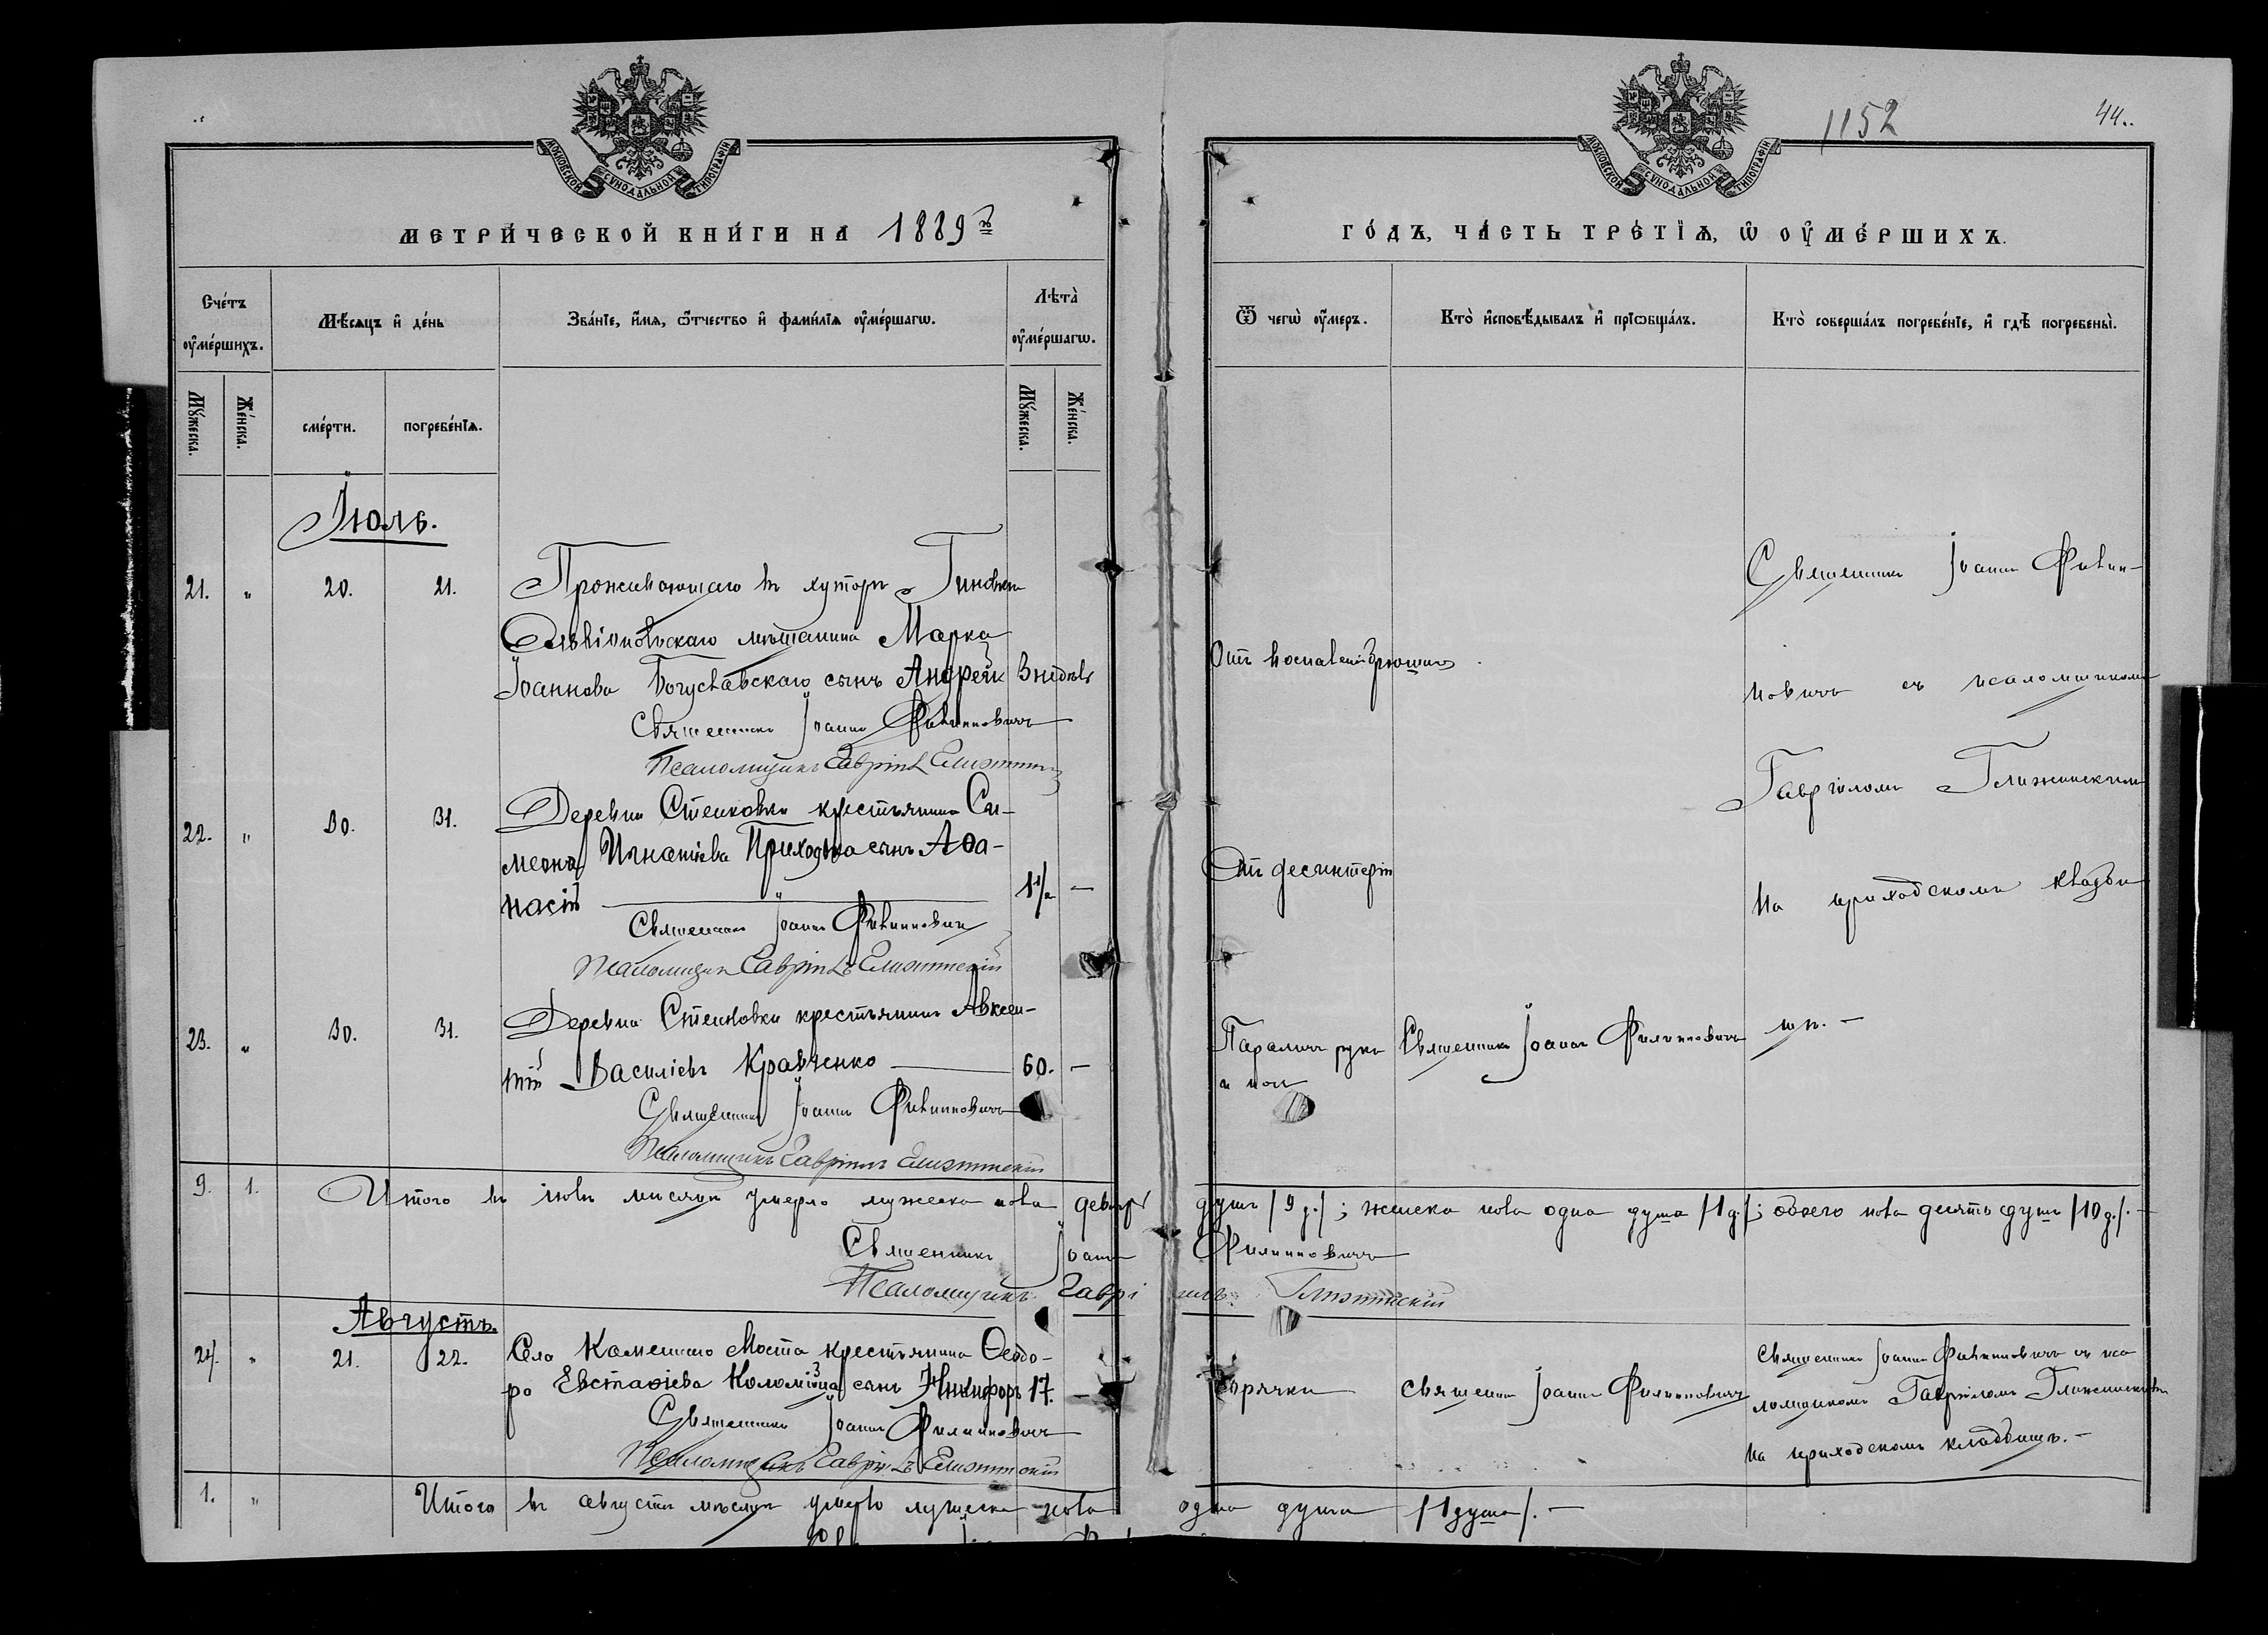 1152
44..
МОСКОВСКОЙ СѴНОДАЛЬНОЙ ТИПОГРАФІИ
МОСКОВСКОЙ СѴНОДАЛЬНОЙ ТИПОГРАФІИ
МЕТРИ́ЧЕСКОЙ КНИ́ГИ НА 1889 г.
ГО́ДЪ, ЧА́СТЬ ТРЕ́ТІѦ, Ѡ ОУ҆МЕ́РШИХЪ.
Сче́тъ оу҆ме́ршихъ.
Мѣ́сяцъ и҆ де́нь
Зва́нїе, и҆́мѧ, ѻ҆́тчество и҆ фами́лїѧ оу҆ме́ршагѡ.
Лѣта̀ оу҆ме́ршагѡ.
Ѿ чегѡ̀ оу҆́меръ.
Кто̀ и҆сповѣ́дывалъ и҆ прїѡбща́лъ.
Кто̀ соверша́лъ погребе́нїе, и҆ гдѣ̀ погребены̀.
Мꙋ́жеска.
Же́нска.
сме́рти.
погребе́нїѧ.
Мꙋ́жеска.
Же́нска.
Іюль.
21. " 20. 21. Проживающаго въ хуторѣ
мѣщанина Марка
Іоаннова Богуславскаго сынъ Андрей 3 недѣль
Священникъ Іоаннъ Филипповичъ
Псаломщикъ Гавріилъ
Отъ воспаленія
Священникъ Іоаннъ Филип-
повичъ съ псаломщикомъ
Гавріиломъ
На приходскомъ кладби
22. " 30. 31. Деревни Степковки крестьянина Си-
меона Игнатіева Приходька сынъ Аѳа-
насій 1 1/2 —
Священникъ Іоаннъ Филипповичъ
Псаломщикъ Гавріилъ
Отъ десинтеріи
23. " 30. 31. Деревни Степковки крестьянинъ Авксен-
тій Василіевъ Кравченко 60. —
Священникъ Іоаннъ Филипповичъ
Псаломщикъ Гавріилъ
Параличъ руки
и ноги
Священникъ Іоаннъ Филипповичъ
щѣ. —
9. 1. Итого въ іюлѣ мѣсяцѣ умерло мужеска пола девять душъ /9 д./; женска пола одна душа /1 д./; обоего пола десять душъ /10 д./. —
Священникъ Іоаннъ Филипповичъ
Псаломщикъ Гавріилъ
Августъ.
24. " 21. 22. Села Каменнаго Моста крестьянина Ѳеодо-
ра Евстаѳіева Коломійца сынъ Никифоръ 17. —
Священникъ Іоаннъ Филипповичъ
Псаломщикъ Гавріилъ
Горячки
Священникъ Іоаннъ Филипповичъ
Священникъ Іоаннъ Филипповичъ съ пса
ломщикомъ Гавріиломъ
На приходскомъ кладбищѣ. —
1. " Итого въ августѣ мѣсяцѣ умерло мужеска пола одна душа /1 душа/. —